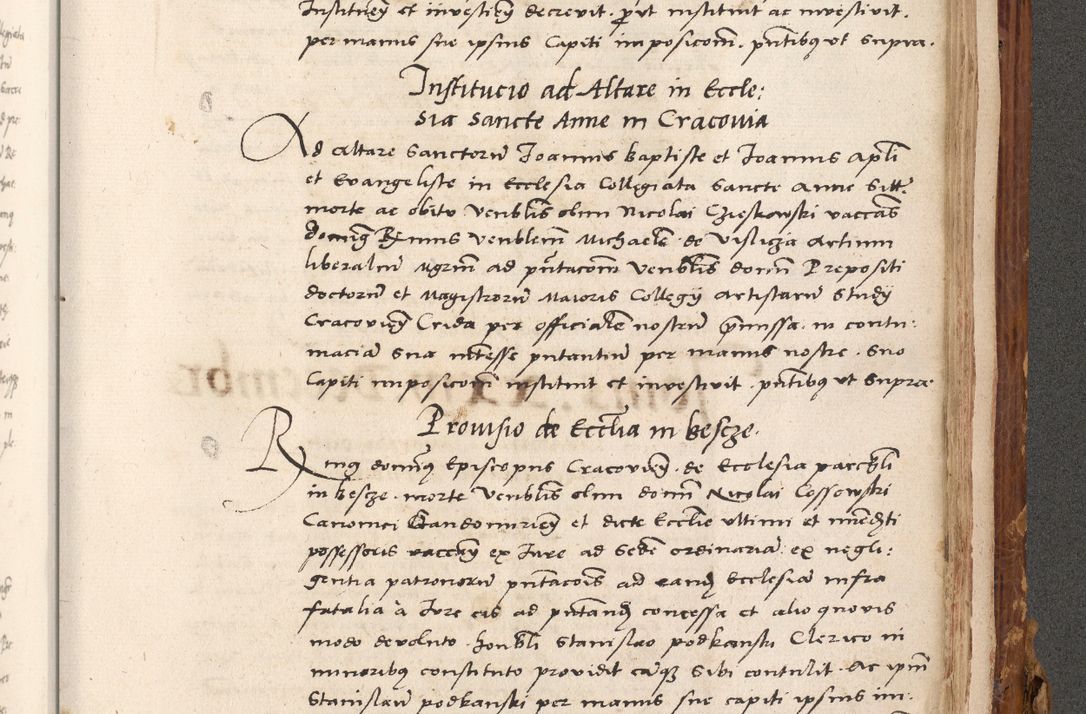 Instituen et investien decrevit. prut instituit ac investivit.
per manus sue ipsius Capiti imposicoem. pntibus ut supra.
Institucio ad Altare in Eccle:
sia Sancte Anne in Cracovia
Ad Altare Sanctoru Joannis baptiste et Joannis Apli
et Evangeliste in Ecclesia Collegiata Sancte Anne
morte ac obitu venblis olim Nicolai Czieskowski vaccans
domins Rmus venblem Michaelem de Vislicza Artium
liberaliu Mgrm ad pntacoem venblis domni Prepositi
doctoru et Magistroru Maioris Collegii Artistaru Studii
Cracovien Crida per officiale nostru pmissa. in contu:
macia sua interesse putantiu per manus nostre. suo
Capiti imposicoem instituit et investivit. pntibus ut supra.
Provisio de Ecclia in bescze.
Rmus domins Episcopus Cracovien. de Ecclesia parochli
in bescze. morte venblis olim domni Nicolai Cossowski
Canonici Sandomirien et dicte Ecclie ultimi et immedti
possessoris vaccan ex Jure ad Sede ordinaria: ex negli:
gentia patronoru pntacois ad eand Ecclesia infra
fatalia a Jure eis ad pntand concessa et alio quovis
modo devoluto. honbli Stanislao podkanski Clerico in
minoribus constituto providit eamque sibi contulit. Ac ipm
Stanislau podkanski per manus sue capiti ipsius im: